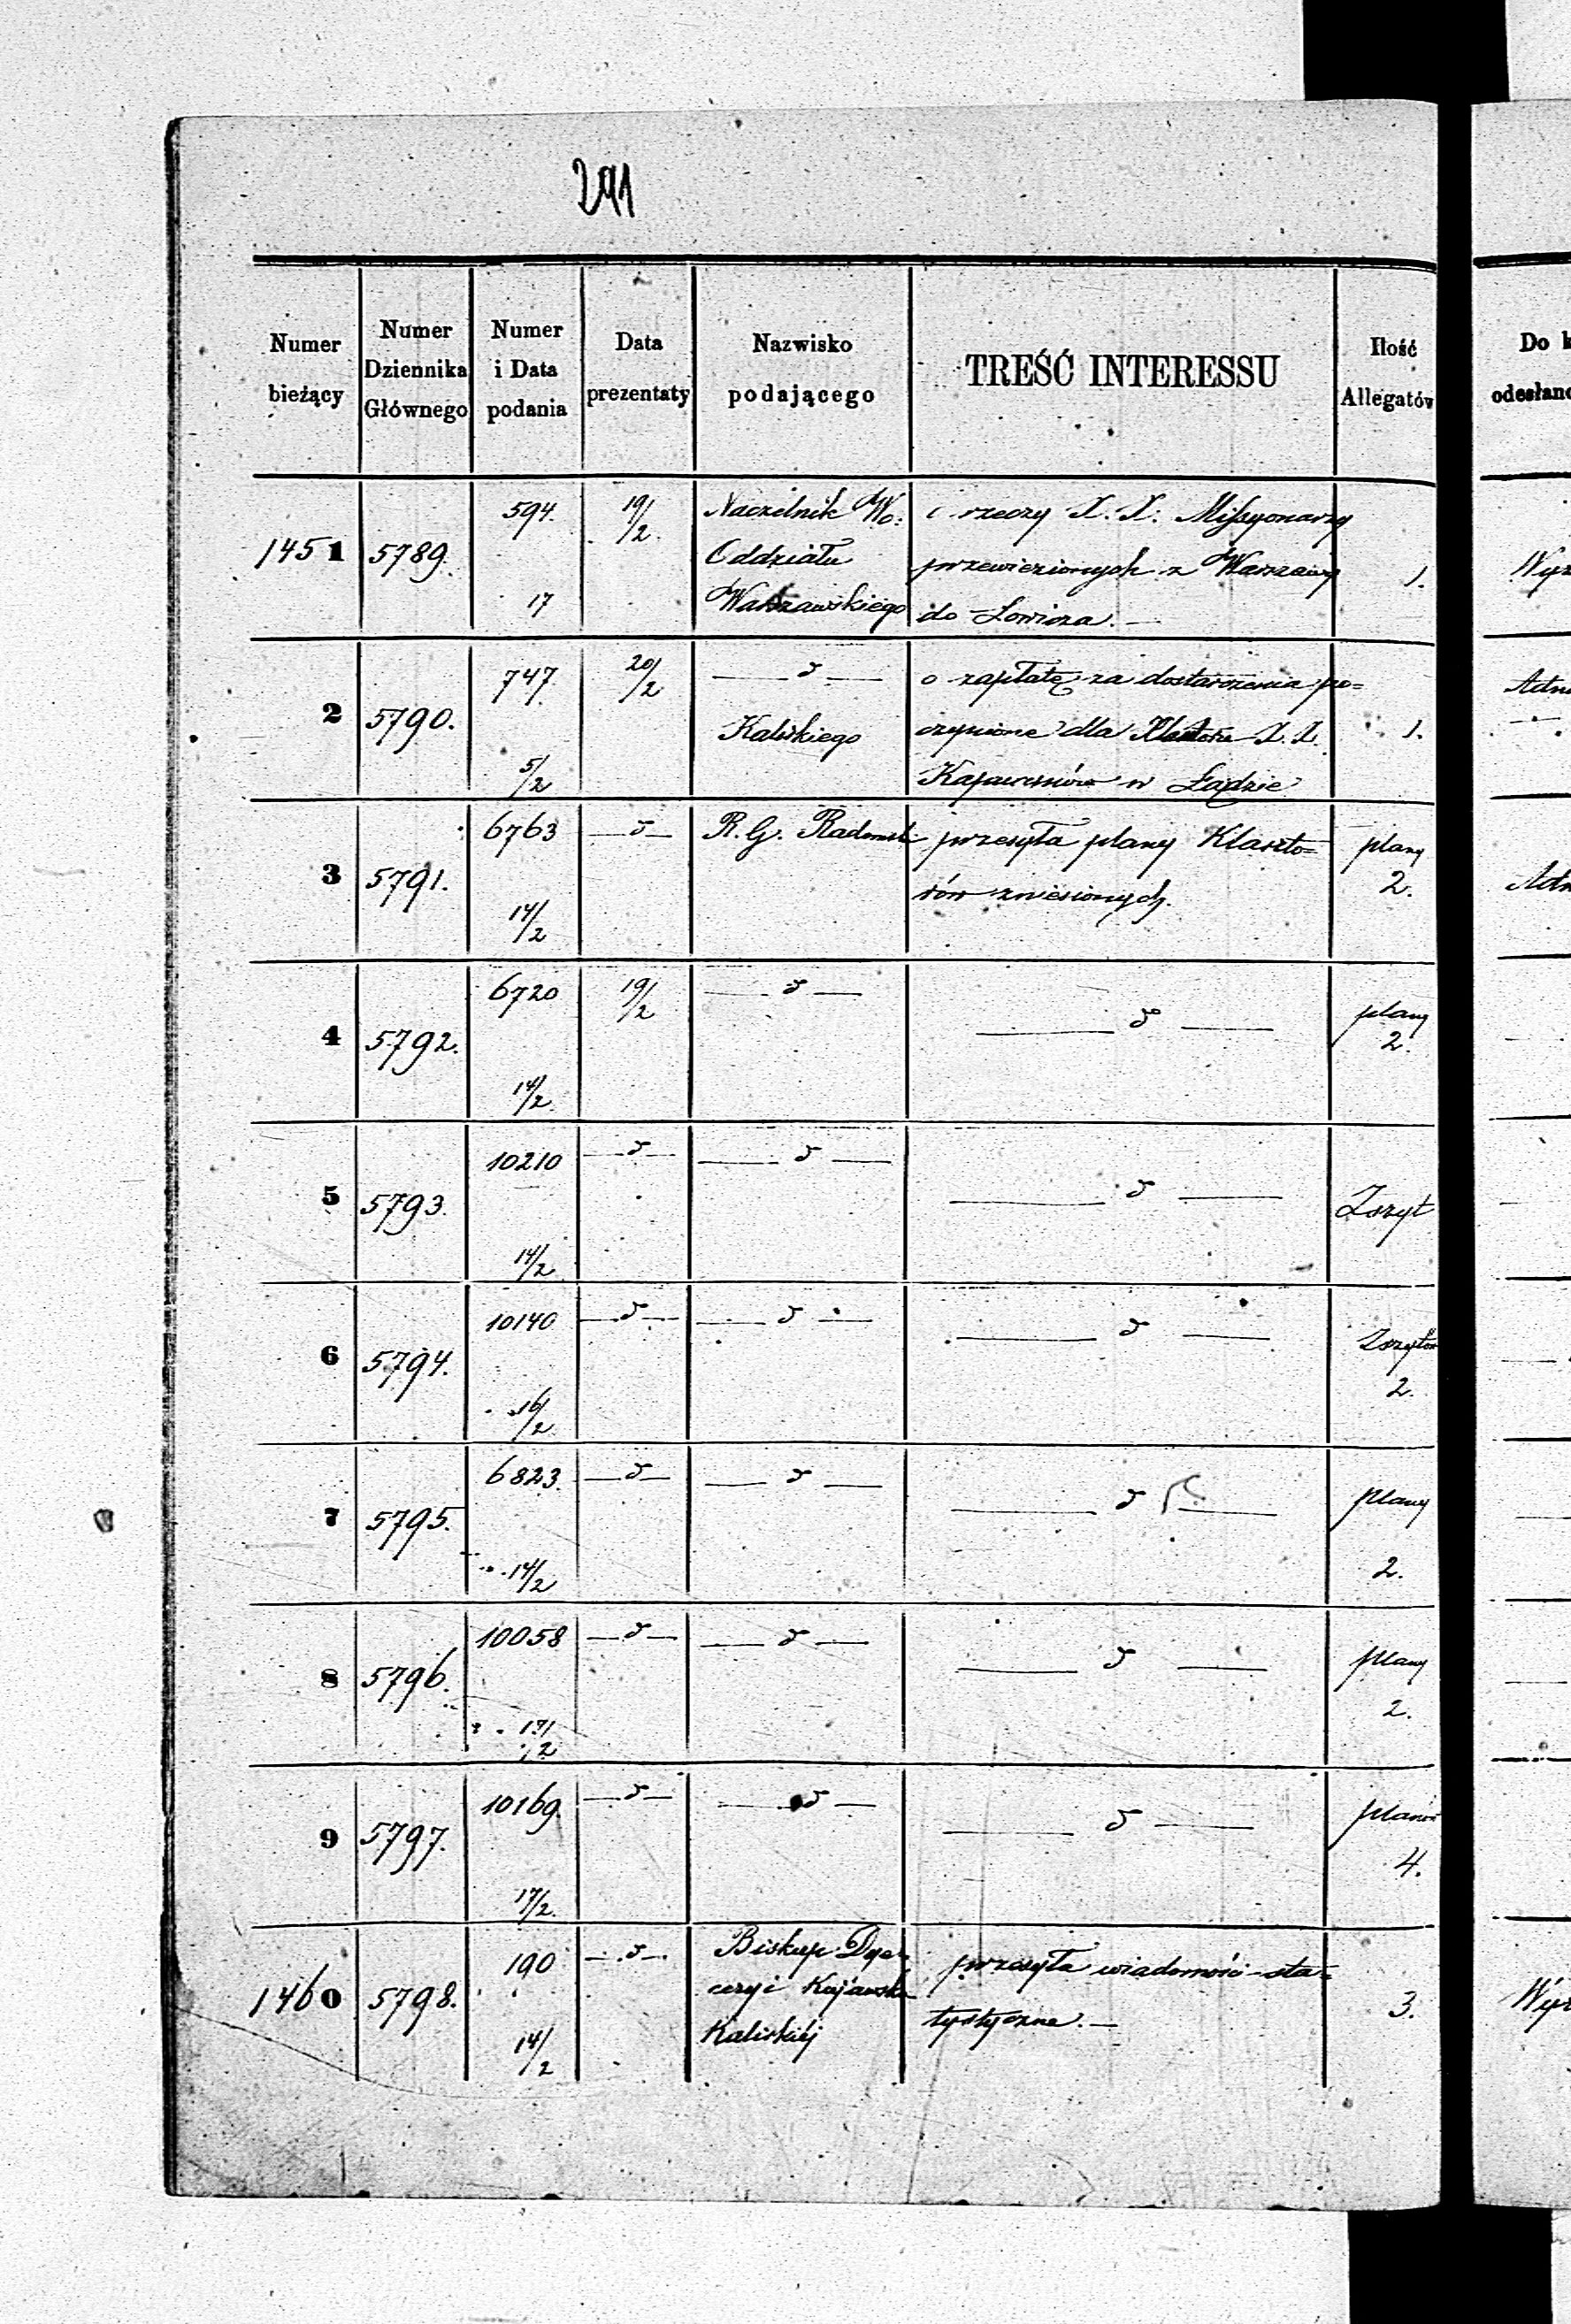 291
Numer bieżący
Numer Dziennika Głównego
Numer i Data podania
Data prezentaty
Nazwisko podającego
TREŚĆ INTERESSU
Ilość Allegatów
1451 5789. 594. 17 19/2
Naczelnik Wo:
Oddziału
Warszawskiego
rzeczy X. X. Missyonarzy
przewiezionych z Warszawy
do Łowicza. —
1.
2 5790. 747. 5/2 20/2
— d —
Kaliskiego
o zapłatę za dostarczenia po=
czynione dla X. X.
Kapucynów w Lądzie
1.
3 5791. 6763 14/2 — d —
R. G. Radomski
przesyła plany Klaszto=
rów zniesionych.
plany
2.
4 5792. 6720 14/2 19/2 — d — — d —
plany
2.
5 5793. 10210 14/2 — d — — d — — d —
Zszyt
6 5794. 10140 16/2 — d — — d — — d —
Zszytów
2.
7 5795. 6823. 14/2 — d — — d — — d —
plany
2.
8 5796. 10058 17/2 — d — — d — — d —
plany
2.
9 5797. 10169. 17/2 — d — — d — — d —
planów
4.
1460 5798. 190 14/2 — d —
Biskup Dye=
cezyi Kujawsko
Kaliskiéj
przesyła wiadomości sta=
tystyczne. —
3.
Do